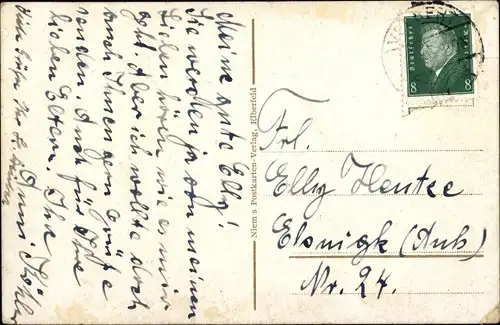 Meine gute Elly!
Sie werden ja von meinen
Lieben hören wie es mir
geht. Aber ich wollte doch
auch Ihnen gern Grüße
senden. Auch für Ihre
lieben Eltern. Ihre
Anni Köhler
Niem's Postkarten-Verlag, Elberfeld
Deutsches Reich
8 8
Frl.
Elly Hentze
Elsnigk (Anh)
Nr. 24.